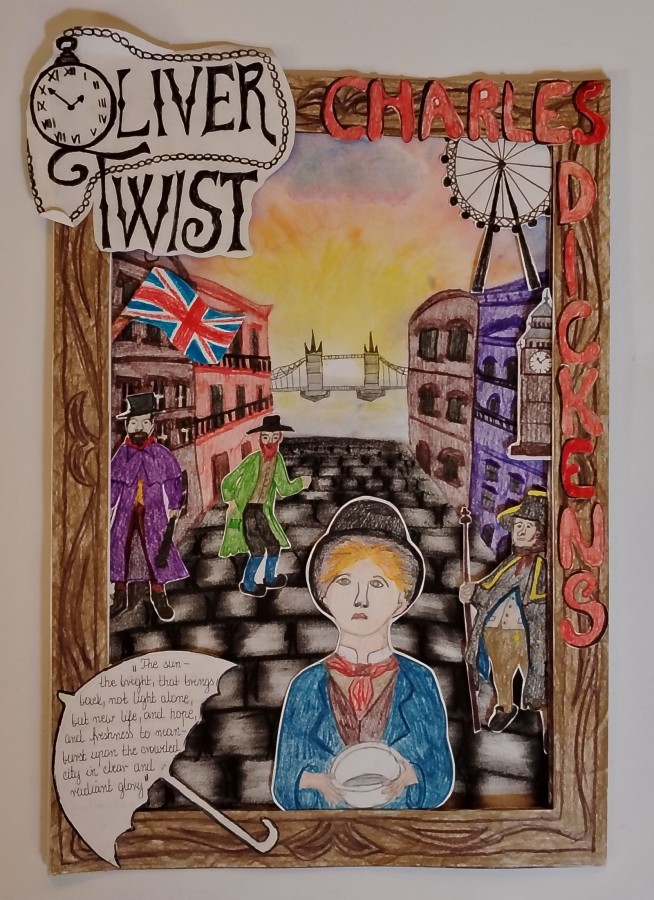 OLIVER
TWIST
CHARLES
DICKENS
"The sun-
the bright, that brings
back, not light alone,
but new life, and hope,
and freshness to man-
burst upon the crowded
city in clear and
radiant glory"